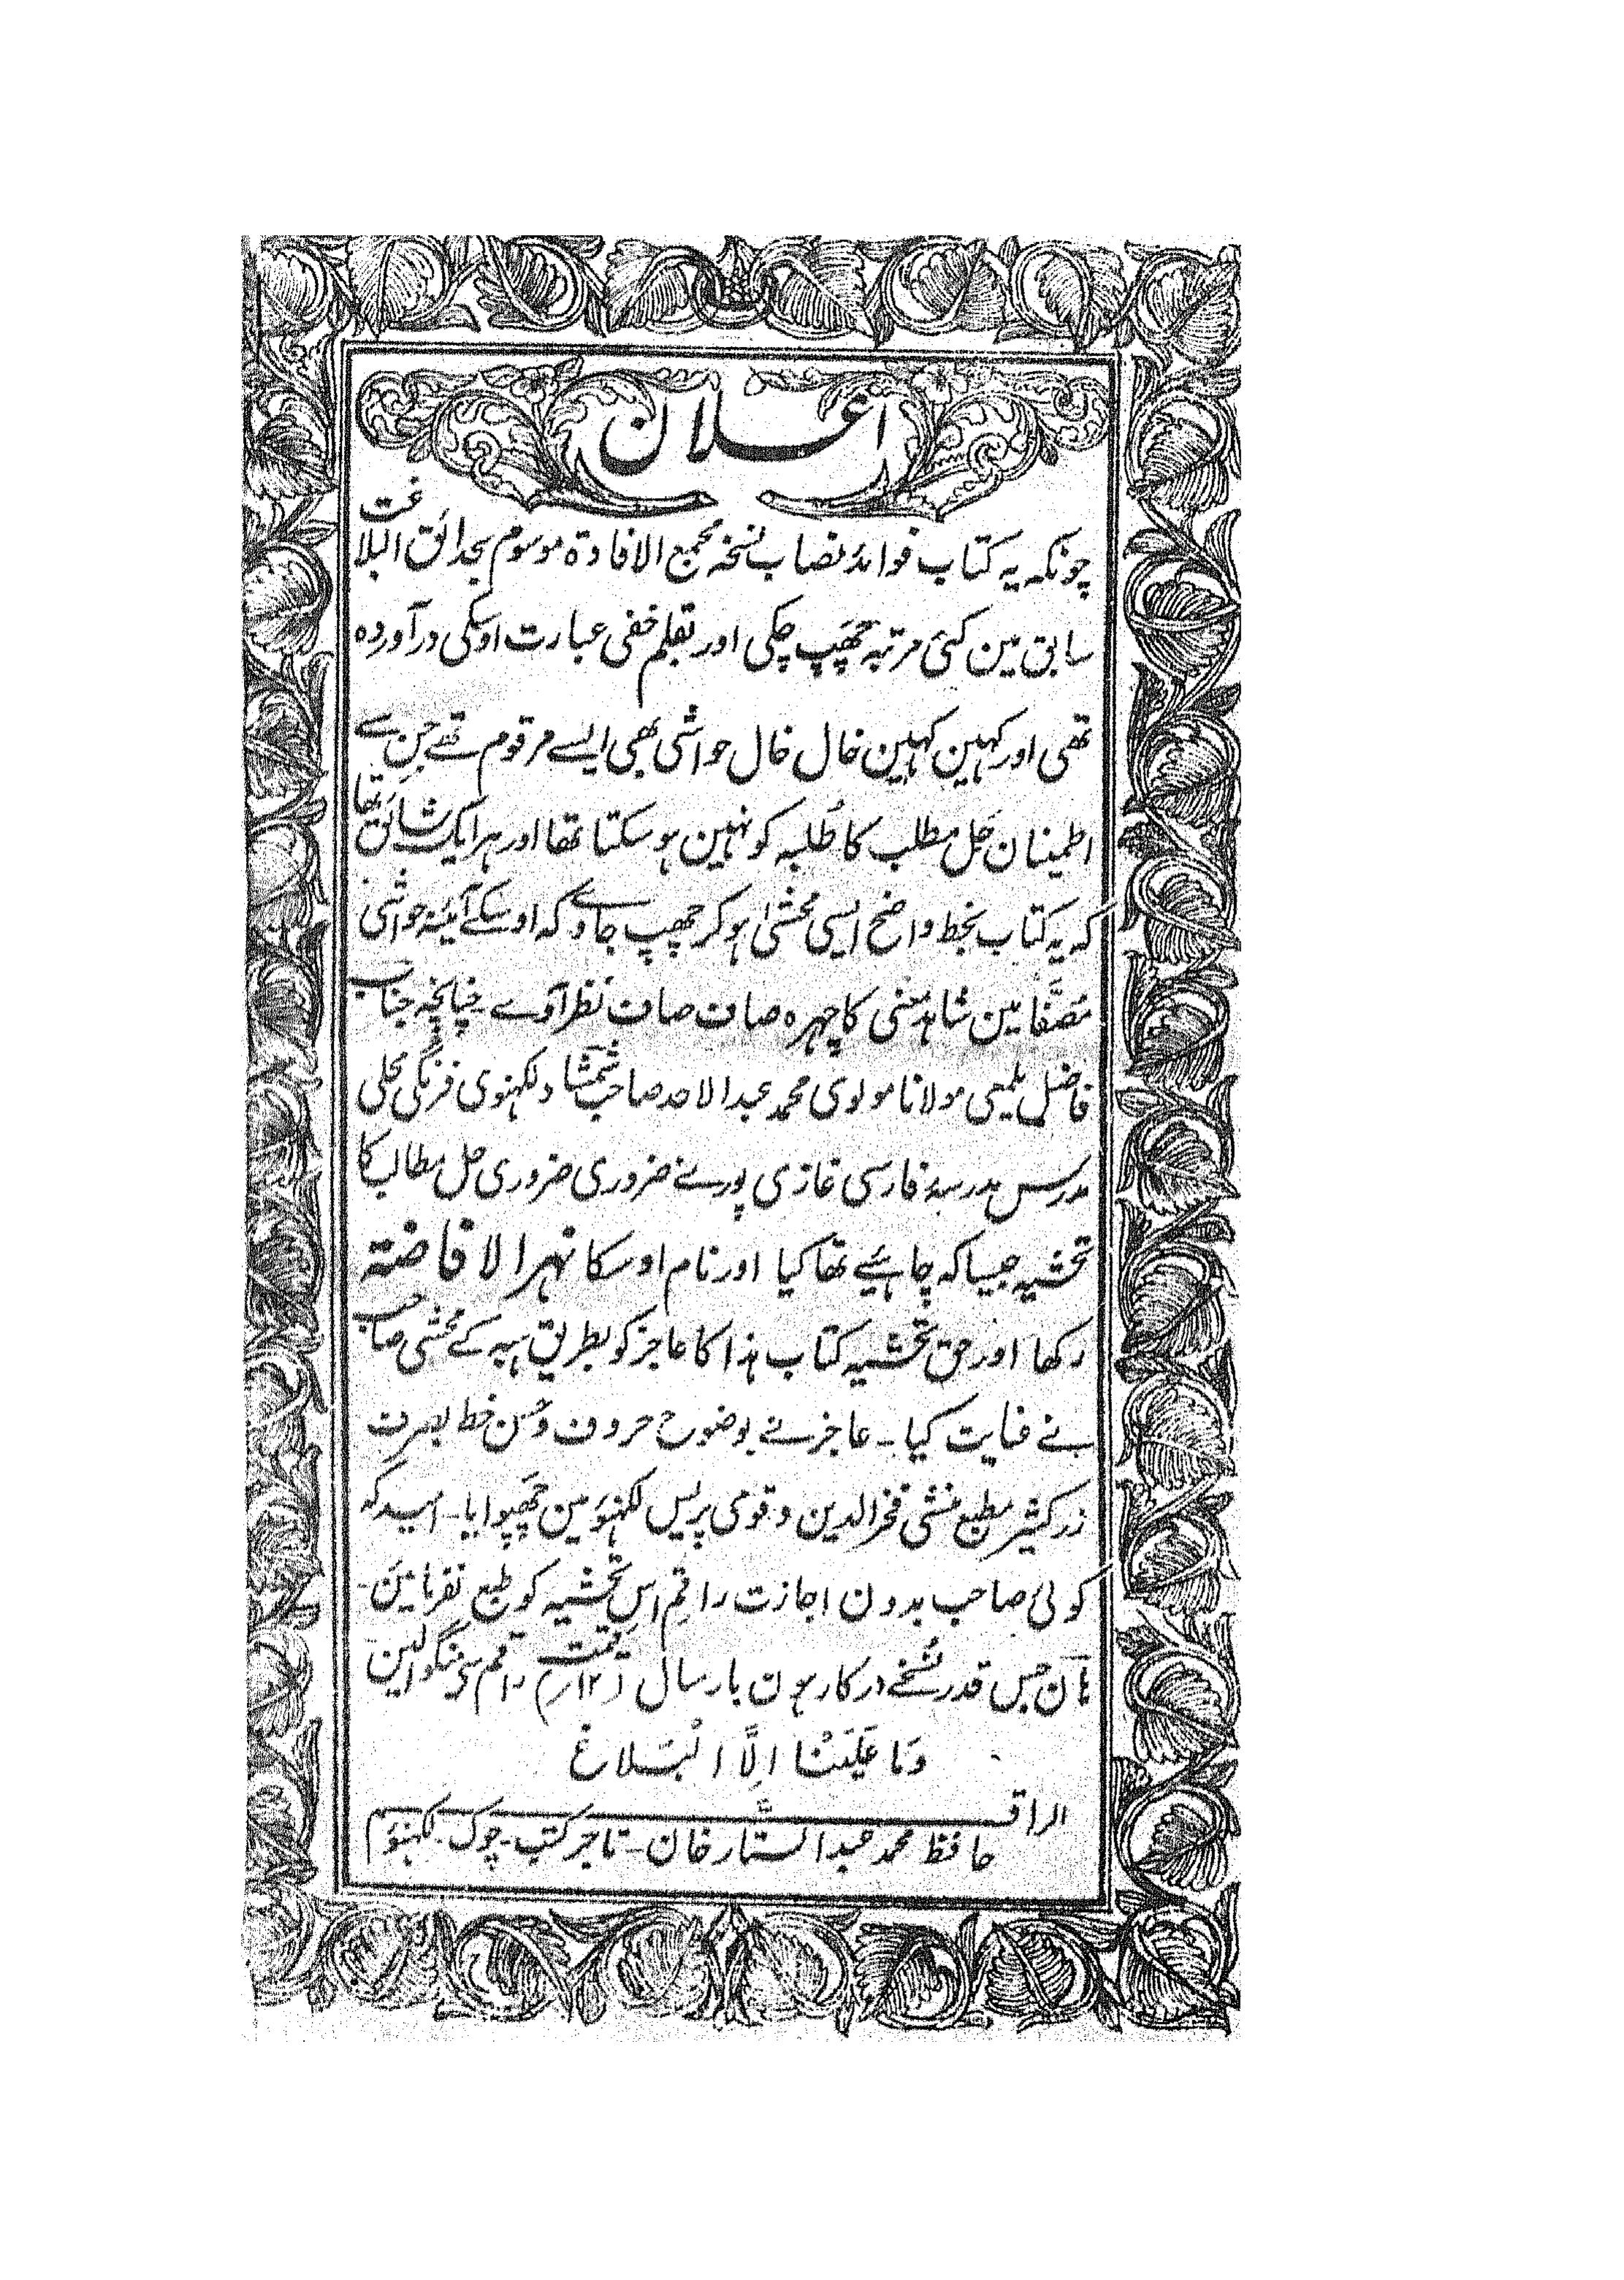 اعلان
چونکہ یہ کتاب فوائد نصاب نسخہ مجمع الافادۃ موسوم بحدائق البلاغت
سابق مین کئی مرتبہ چھپ چکی اور بقلم خفی عبارت اوسکی درآوردہ
تھی اور کہین کہین خال خال حواشی بھی ایسے مرقوم تھے جن سے
اطمینان حل مطلب کا طلبہ کو نہین ہو سکتا تھا اور ہر ایک شائق تھا
کہ یہ کتاب بخط واضح ایسی محشیٰ ہو کر چھپ جاوے کہ اوسکے آئینۂ حواشی
مصفا مین شاہد معنی کا چہرہ صاف صاف نظر آوے ۔ چنانچہ جناب
فاضل یلمعی مولانا مولوی محمد عبد الاحد صاحب شمشاد لکہنوی فرنگی محلی
مدرس مدرسۂ فارسی غازی پور نے ضروری ضروری حل مطالب کا
تحشیہ جیسا کہ چاہئیے تھا کیا اور نام اوسکا نہر الافاضۃ
رکھا اور حق تحشیہ کتاب ہذا کا عاجز کو بطریق ہبہ کے محشی صاحب
نے عنایت کیا ۔ عاجز نے بوضوح حروف و حسن خط بصرف
زر کثیر مطبع منشی فخر الدین و قومی پریس لکہنؤ مین چھپوایا ۔ امید کہ
کوئی صاحب بدون اجازت راقم اس تحشیہ کو طبع نفرمائین ۔
ہان جس قدر نسخے درکار ہون بارسال قیمت (۱۲؍) راقم سے منگوالین
وَمَا عَلَیْنَا اِلَّا الْبَلَاغ
الراقم
حافظ محمد عبد الستّار خان ۔ تاجر کتب ۔ چوک ۔ لکہنؤ